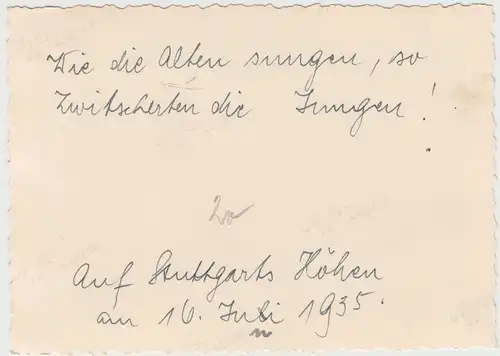 Wie die Alten sungen, so
Zwitscherten die Jungen!
20
Auf Stuttgarts Höhen
am 16. Juni 1935.